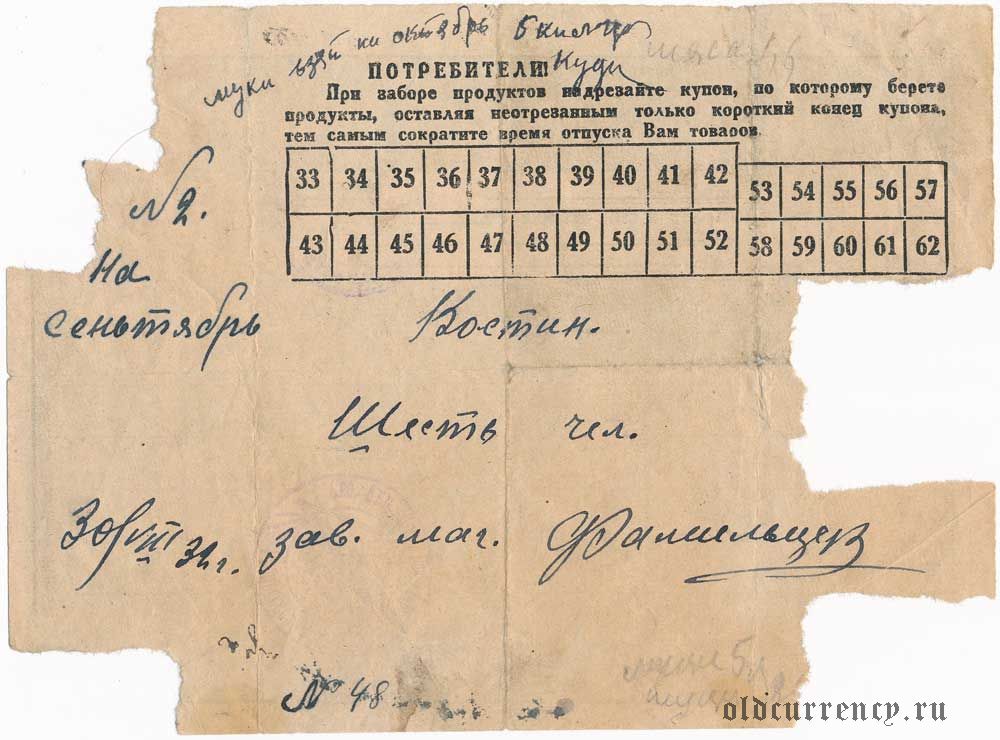 муки взят на октябрь 5 кило
Куди
ПОТРЕБИТЕЛИ!
При заборе продуктов надрезайте купон, по которому берете
продукты, оставляя неотрезанным только короткий конец купона,
тем самым сократите время отпуска Вам товаров.
33 34 35 36 37 38 39 40 41 42
53 54 55 56 57
43 44 45 46 47 48 49 50 51 52
58 59 60 61 62
№ 2.
на
сеньтябрь
Костин.
Шесть чел.
30/VIII 31 г. зав. маг.
№ 48
oldcurrency.ru